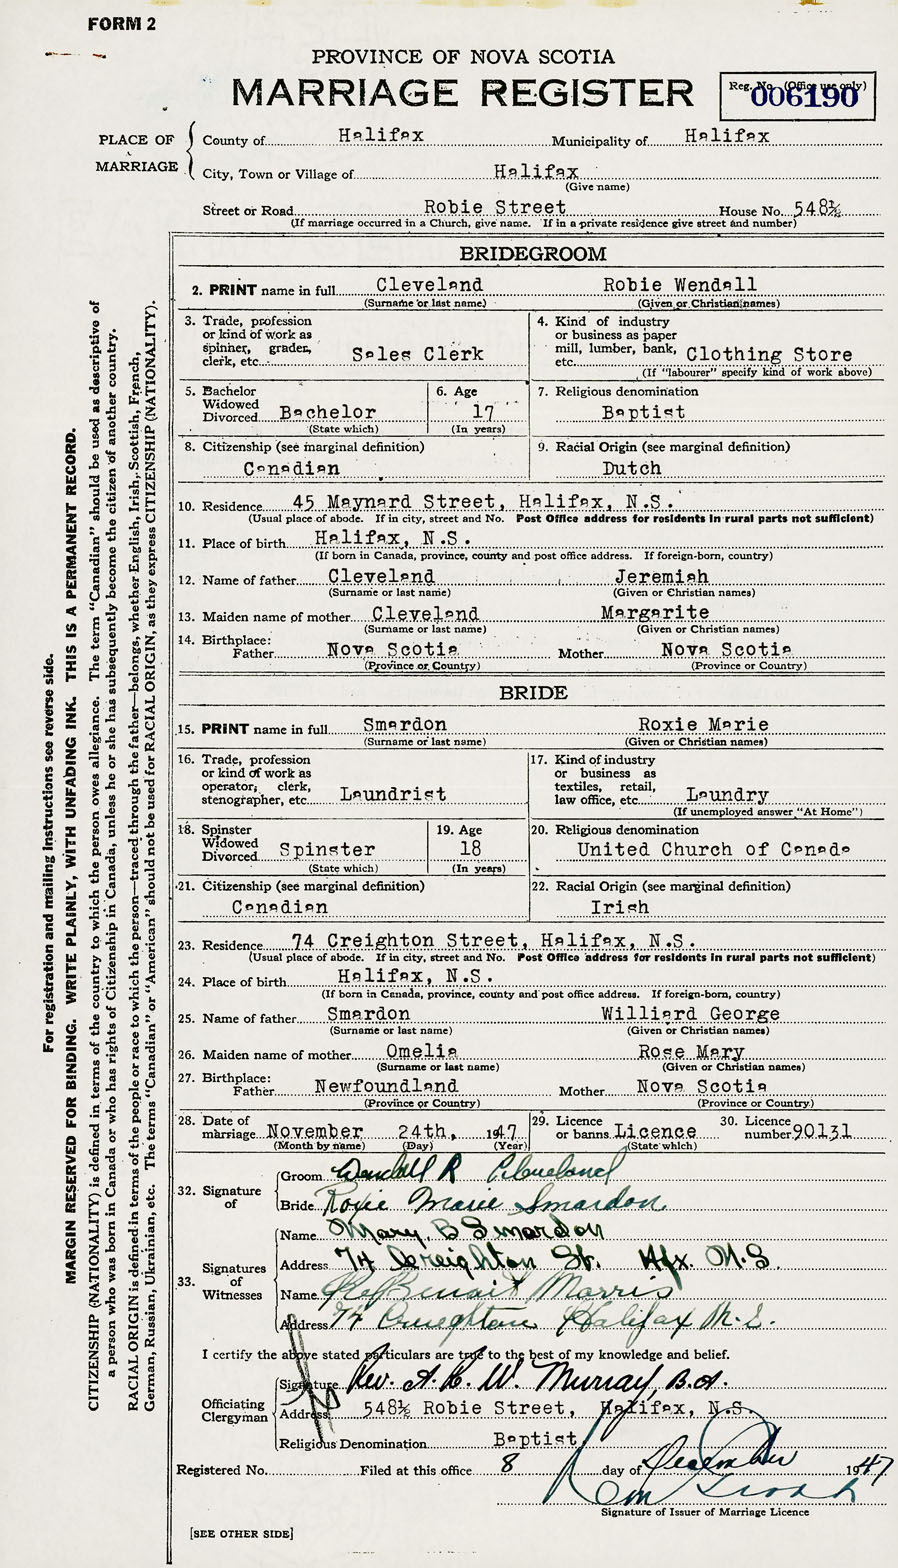 FORM 2
PROVINCE OF NOVA SCOTIA
MARRIAGE REGISTER
Reg. No. (Office use only)
006190
PLACE OF MARRIAGE
County of Halifax Municipality of Halifax
City, Town or Village of Halifax
(Give name)
Street or Road Robie Street House No. 548½
(If marriage occurred in a Church, give name. If in a private residence give street and number)
BRIDEGROOM
2. PRINT name in full Cleveland Robie Wendall
(Surname or last name) (Given or Christian names)
3. Trade, profession or kind of work as spinner, grader, clerk, etc. Sales Clerk
4. Kind of industry or business as paper mill, lumber, bank, etc. Clothing Store
(If "labourer" specify kind of work above)
5. Bachelor Widowed Divorced Bachelor
(State which)
6. Age 17
(In years)
7. Religious denomination
Baptist
8. Citizenship (see marginal definition)
Canadian
9. Racial Origin (see marginal definition)
Dutch
10. Residence 45 Maynard Street, Halifax, N.S.
(Usual place of abode. If in city, street and No. Post Office address for residents in rural parts not sufficient)
11. Place of birth Halifax, N.S.
(If born in Canada, province, county and post office address. If foreign-born, country)
12. Name of father Cleveland Jeremiah
(Surname or last name) (Given or Christian names)
13. Maiden name of mother Cleveland Margarite
(Surname or last name) (Given or Christian names)
14. Birthplace:
Father Nova Scotia Mother Nova Scotia
(Province or Country) (Province or Country)
BRIDE
15. PRINT name in full Smardon Roxie Marie
(Surname or last name) (Given or Christian names)
16. Trade, profession or kind of work as operator, clerk, stenographer, etc. Laundrist
17. Kind of industry or business as textiles, retail, law office, etc. Laundry
(If unemployed answer "At Home")
18. Spinster Widowed Divorced Spinster
(State which)
19. Age
18
(In years)
20. Religious denomination
United Church of Canada
21. Citizenship (see marginal definition)
Canadian
22. Racial Origin (see marginal definition)
Irish
23. Residence 74 Creighton Street, Halifax, N.S.
(Usual place of abode. If in city, street and No. Post Office address for residents in rural parts not sufficient)
24. Place of birth Halifax, N.S.
(If born in Canada, province, county and post office address. If foreign-born, country)
25. Name of father Smardon Williard George
(Surname or last name) (Given or Christian names)
26. Maiden name of mother Omelia Rose Mary
(Surname or last name) (Given or Christian names)
27. Birthplace:
Father Newfoundland Mother Nova Scotia
(Province or Country) (Province or Country)
28. Date of marriage November 24th, 1947
(Month by name) (Day) (Year)
29. Licence or banns Licence
(State which)
30. Licence number 90131
32. Signature of
Groom Wendall R Cleveland
Bride Roxie Marie Smardon
33. Signatures of Witnesses
Name Mary. B Smardon
Address 74 Creighton St. Hfx. N.S.
Name Morris
Address 74 Creighton Halifax N.S.
I certify the above stated particulars are true to the best of my knowledge and belief.
Officiating Clergyman
Signature Rev. A. E. W. Murray, B.A.
Address 548½ Robie Street, Halifax, N.S.
Religious Denomination Baptist
Registered No. Filed at this office 8 day of December 1947
Signature of Issuer of Marriage Licence
[SEE OTHER SIDE]
For registration and mailing instructions see reverse side.
MARGIN RESERVED FOR BINDING. WRITE PLAINLY, WITH UNFADING INK. THIS IS A PERMANENT RECORD.
CITIZENSHIP (NATIONALITY) is defined in terms of the country to which the person owes allegiance. The term "Canadian" should be used as descriptive of
a person who was born in Canada or who has rights of Citizenship in Canada, unless he or she has subsequently become the citizen of another country.
RACIAL ORIGIN is defined in terms of the people or race to which the person—traced through the father—belongs, whether English, Irish, Scottish, French,
German, Russian, Ukrainian, etc. The terms "Canadian" or "American" should not be used for RACIAL ORIGIN, as they express CITIZENSHIP (NATIONALITY).